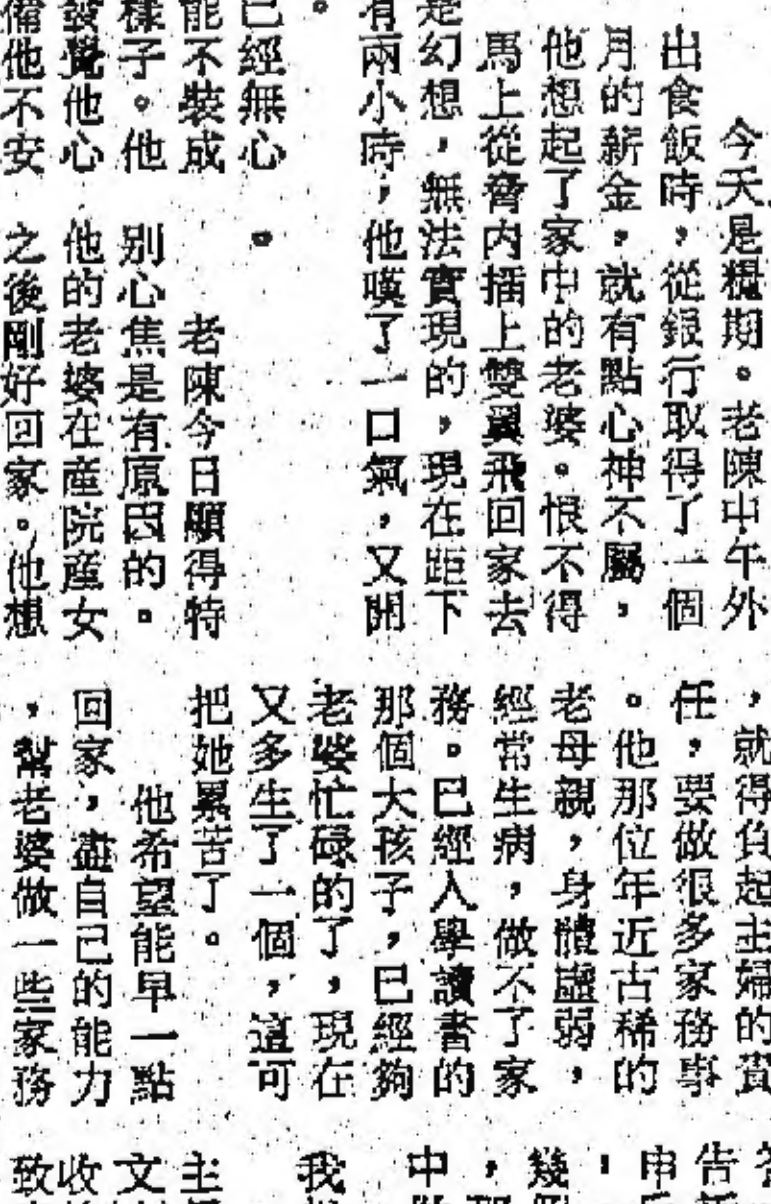 今天是糧期。老陳中午外
出食飯時，從銀行取得了一個
月的薪金，就有點心神不屬，
他想起了家中的老婆。恨不得
馬上從齊內插上雙翼飛回家去
是幻想，無法實現的，現在距下
有兩小時，他嘆了一口氣，又開
。
已經無心
能不裝成
樣子。他
發覺他心
備他不安
。
老陳今日顯得特
別心焦是有原因的。
他的老婆在產院產女
之後剛好回家。他想
，就得負起主婦的責
任，要做很多家務事
。他那位年近古稀的
老母親，身體虛弱，
經常生病，做不了家
務。已經入學讀書的
那個大孩子，已經夠
老婆忙碌的了，現在
又多生了一個，這可
把她累苦了。
他希望能早一點
回家，盡自己的能力
，幫老婆做一些家務
告
申
幾
，
中
我
主
文
收
致